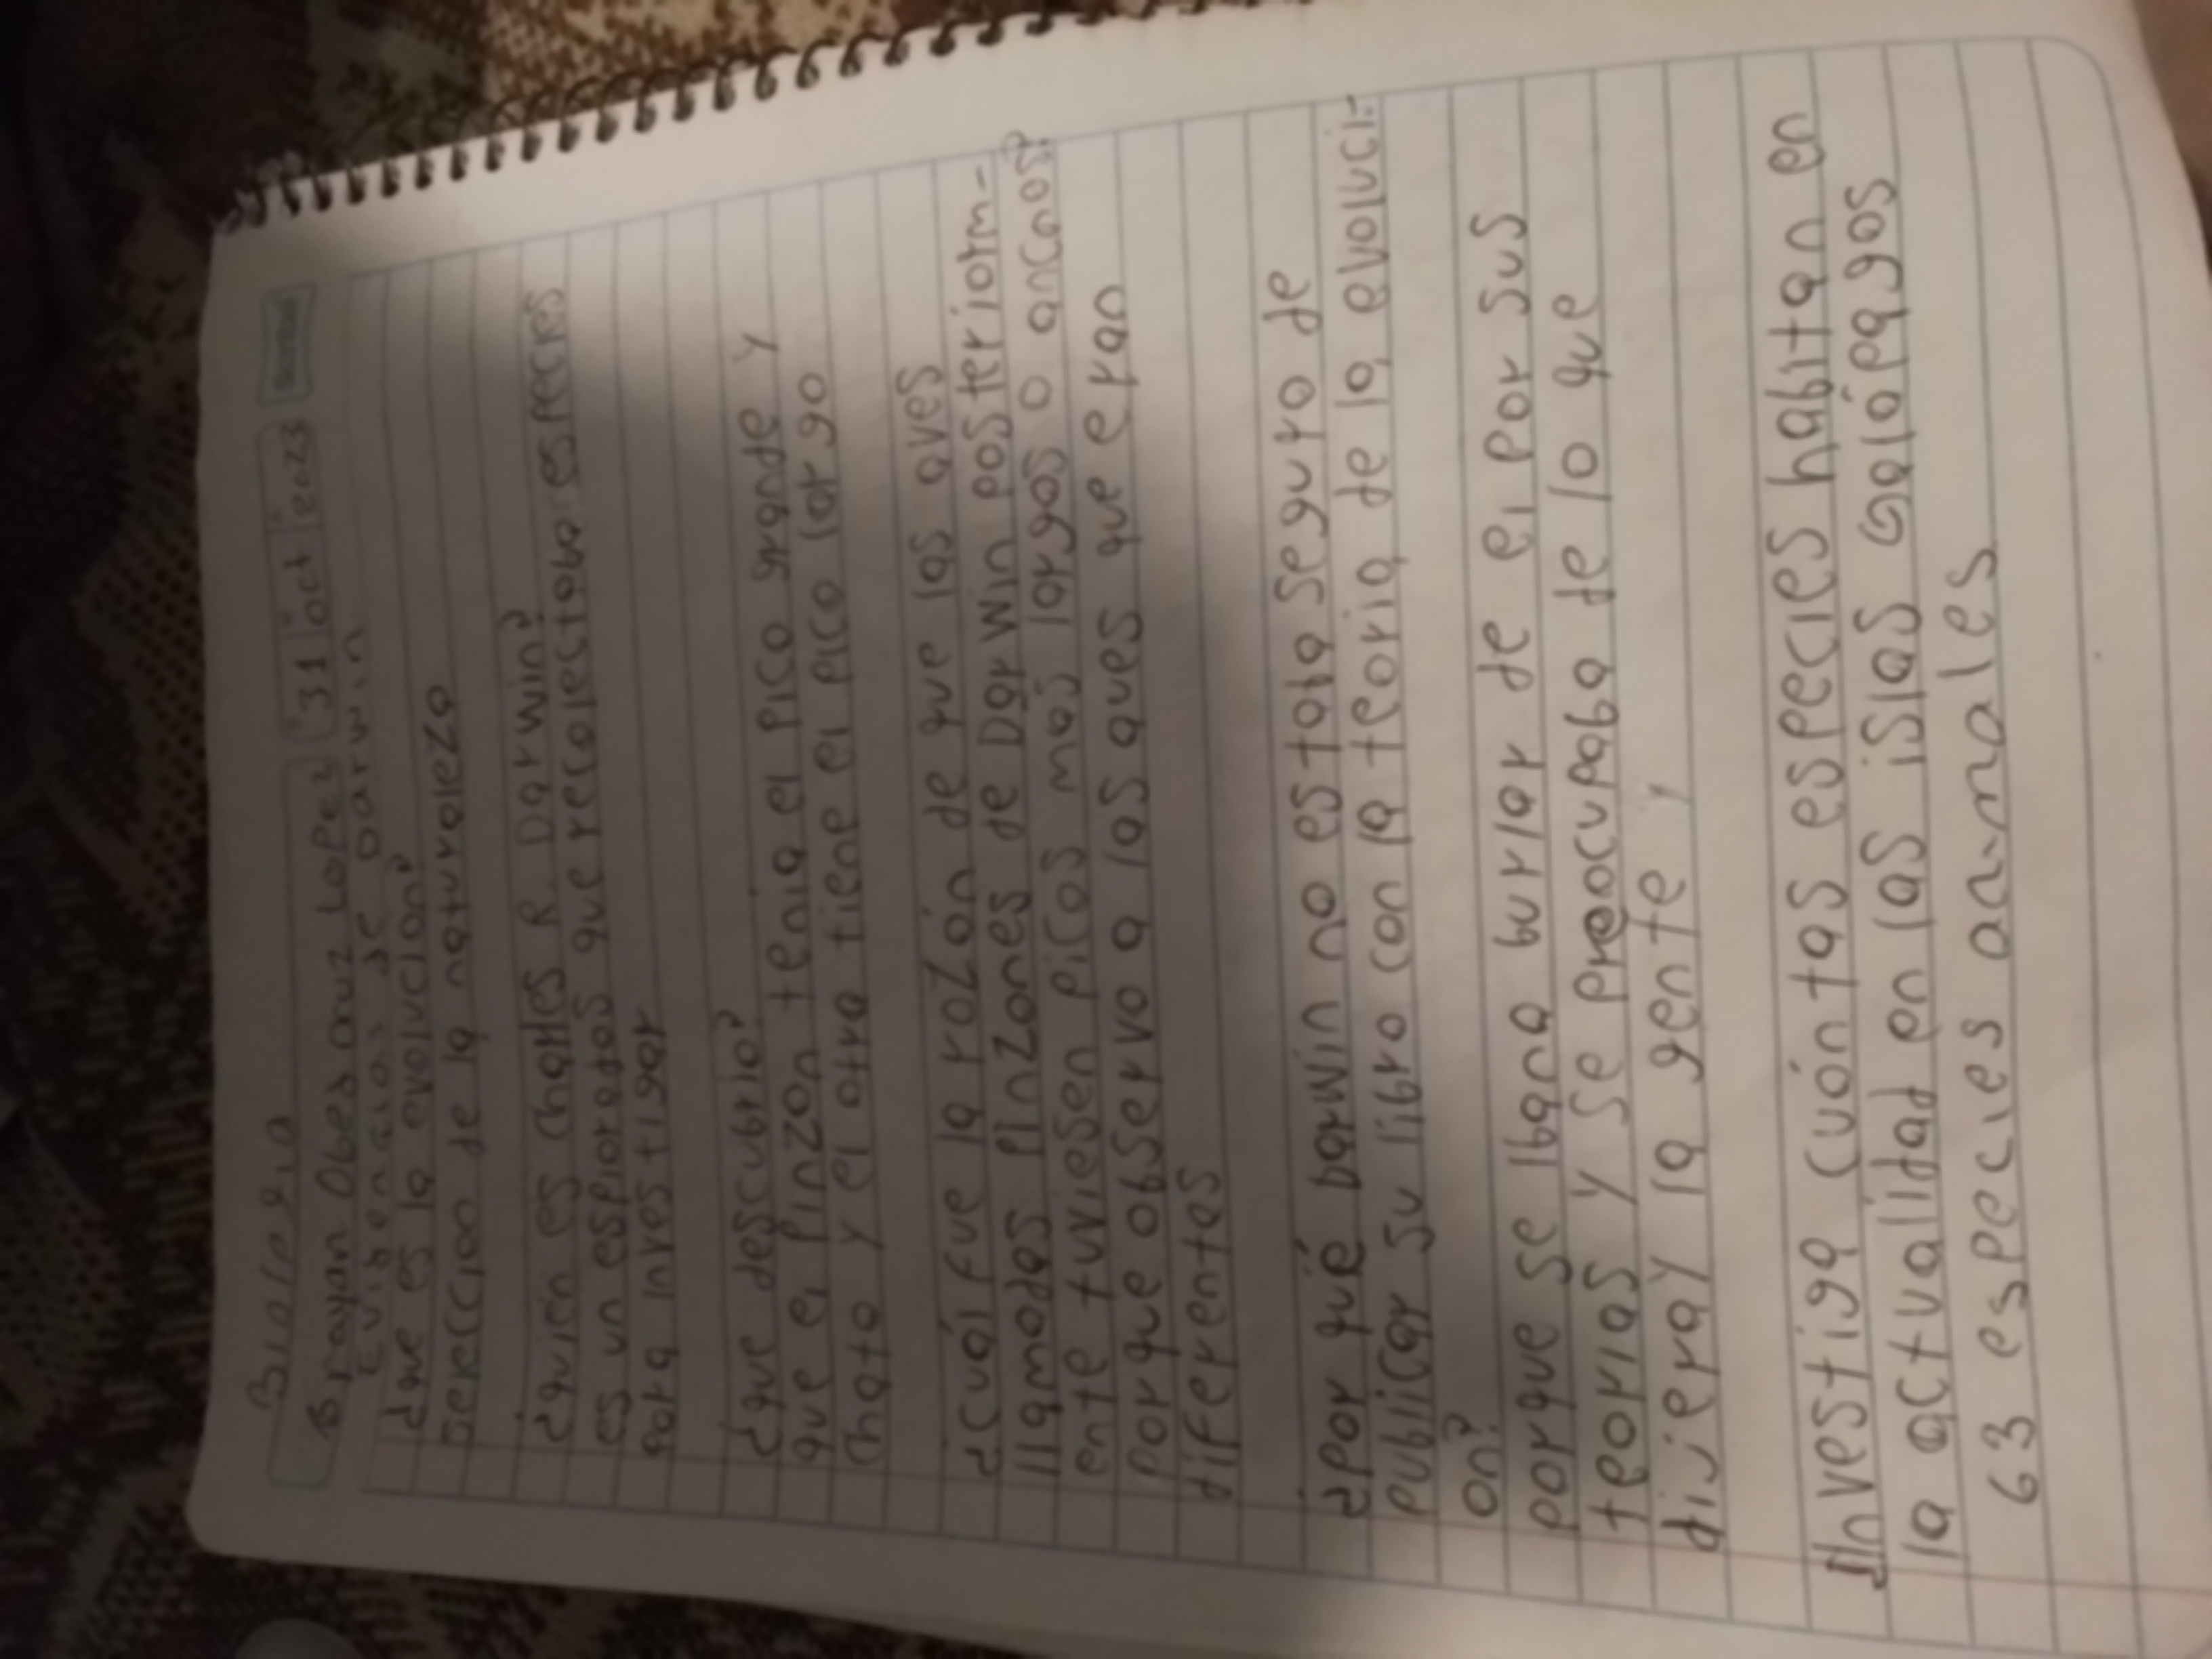 Biolegia
Brayan Obed cruz Lopez 31 oct 2023 Scribe
Evidencias de Darwin
¿que es la evolucion?
Sereccion de la naturaleza
¿quien es Charles R. Darwin?
es un esplorados que recolectaba especies
para investigar
¿que descubrio?
que el pinzon tenia el pico grande y
chato y el otra tiene el pico largo
¿cuál fue la razón de que las aves
llamadas pinzones de Darwin posteriorm-
ente tuviesen picos más largos o ancnos?
porque observo a las aves que eran
diferentes
¿por qué Darwin no estaba seguro de
publicar su libro con la teoria de la evoluci-
on?
porque se lbana burlar de el por sus
teorias y se preocupaba de lo que
dijeray la gente y
Investiga cuántas especies habitan en
la actualidad en las islas Galápagos
63 especies anmales